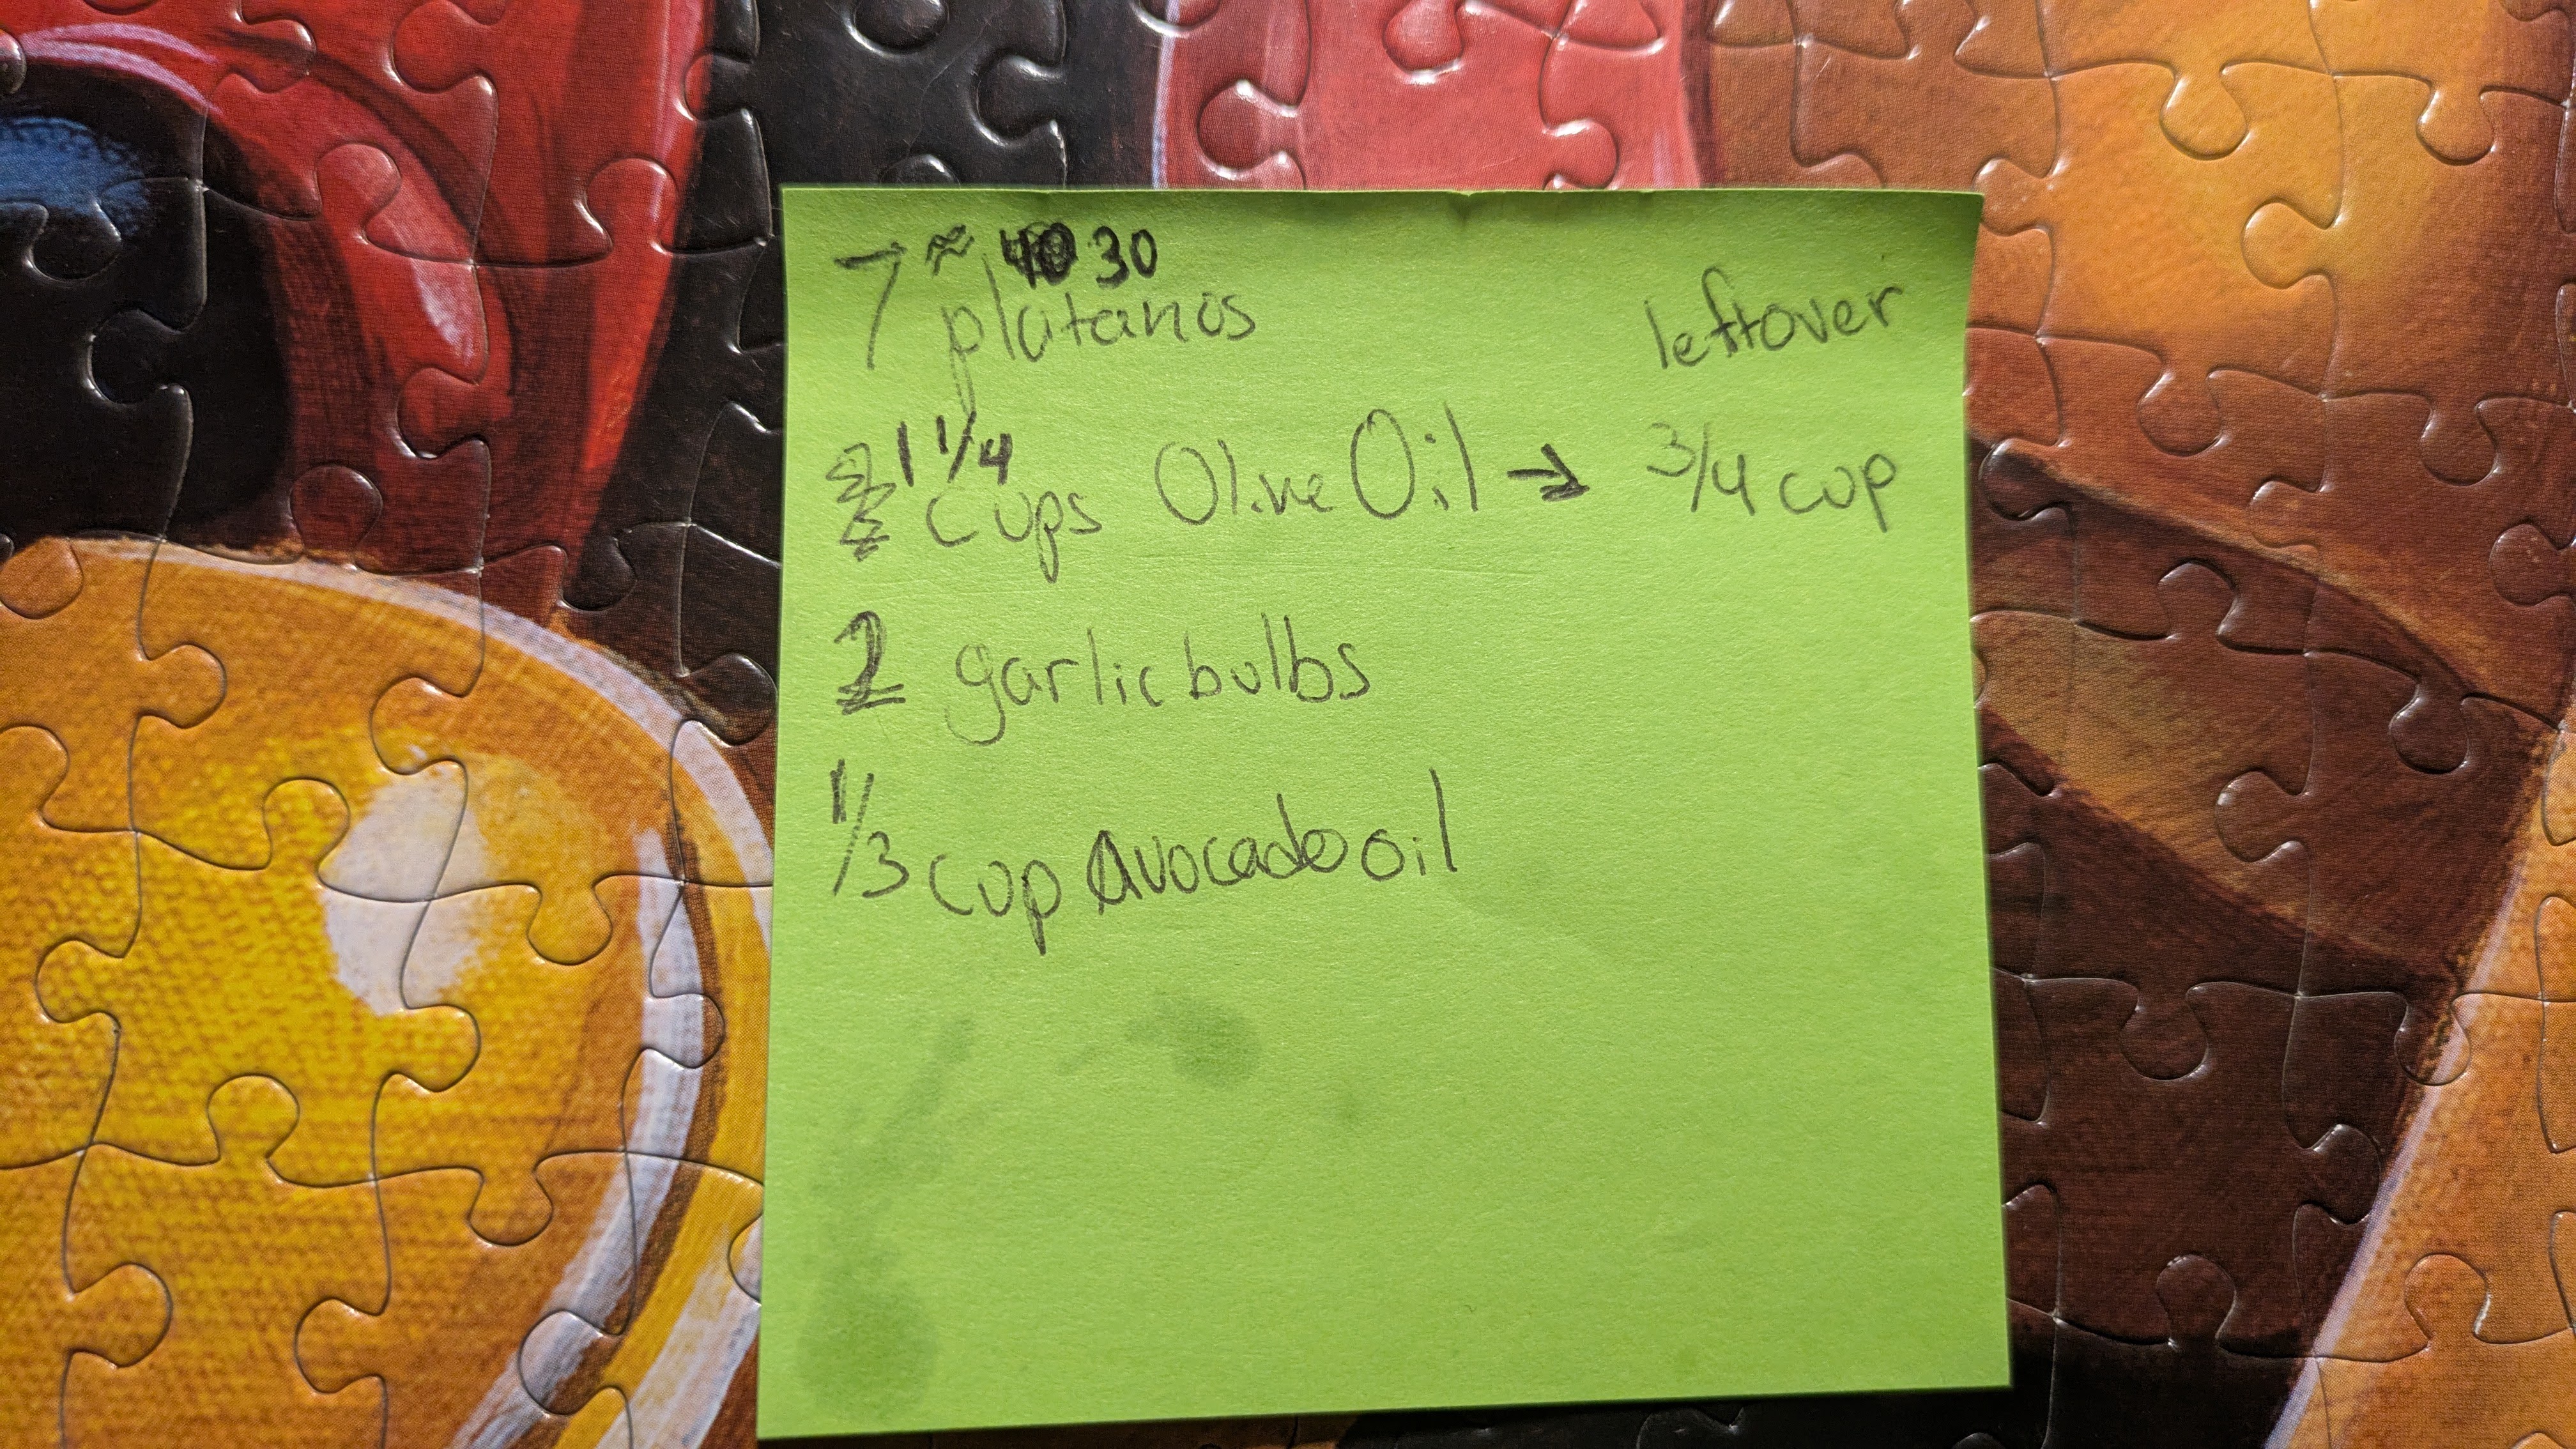 7 ≈ 30
platanos
leftover
1 1/4
cups Olive Oil → 3/4 cup
2 garlic bulbs
1/3 cup Avocado oil